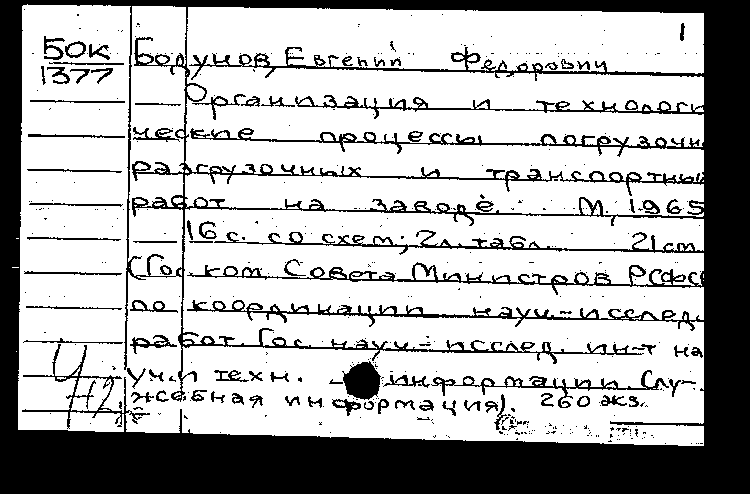 1
БОК
1377
Бодунов, Евгений Федорович
Организация и технологи
ческие процессы погрузочн
разгрузочных и транспортных
работ на заводе. М, 1965
16с. со схем; 2л. табл. 21см
(Гос. ком. Совета Министров РСФСР
по координации науч-исслед.
работ. Гос. науч-исслед. ин-т на
уч. и техн. информации. Слу-
жебная информация). 260 экз.